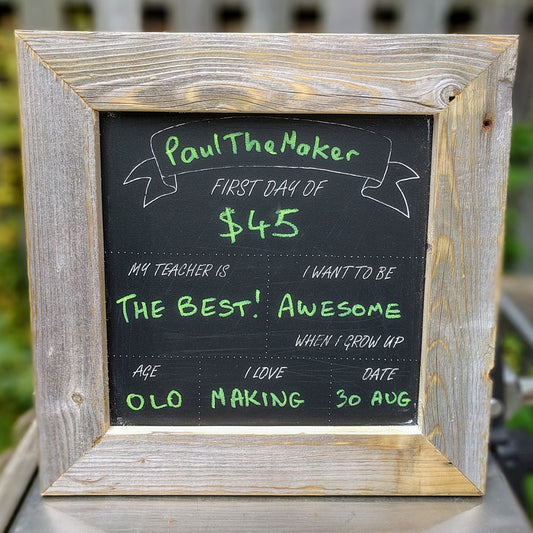 PaulTheMaker
FIRST DAY OF
$45
MY TEACHER IS
THE BEST!
I WANT TO BE
AWESOME
WHEN I GROW UP
AGE
OLD
I LOVE
MAKING
DATE
30 AUG